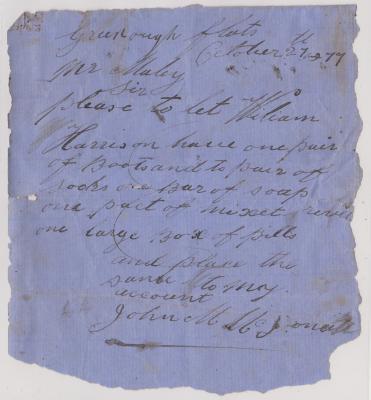 flats
October 27th 77
Mr Maley
Sir
please to let William
Harrison have one pair
of Boots and to pair of
socks one Bar of soap
one pact of mixet
one large Box of pills
and place the
same to my
account
John M